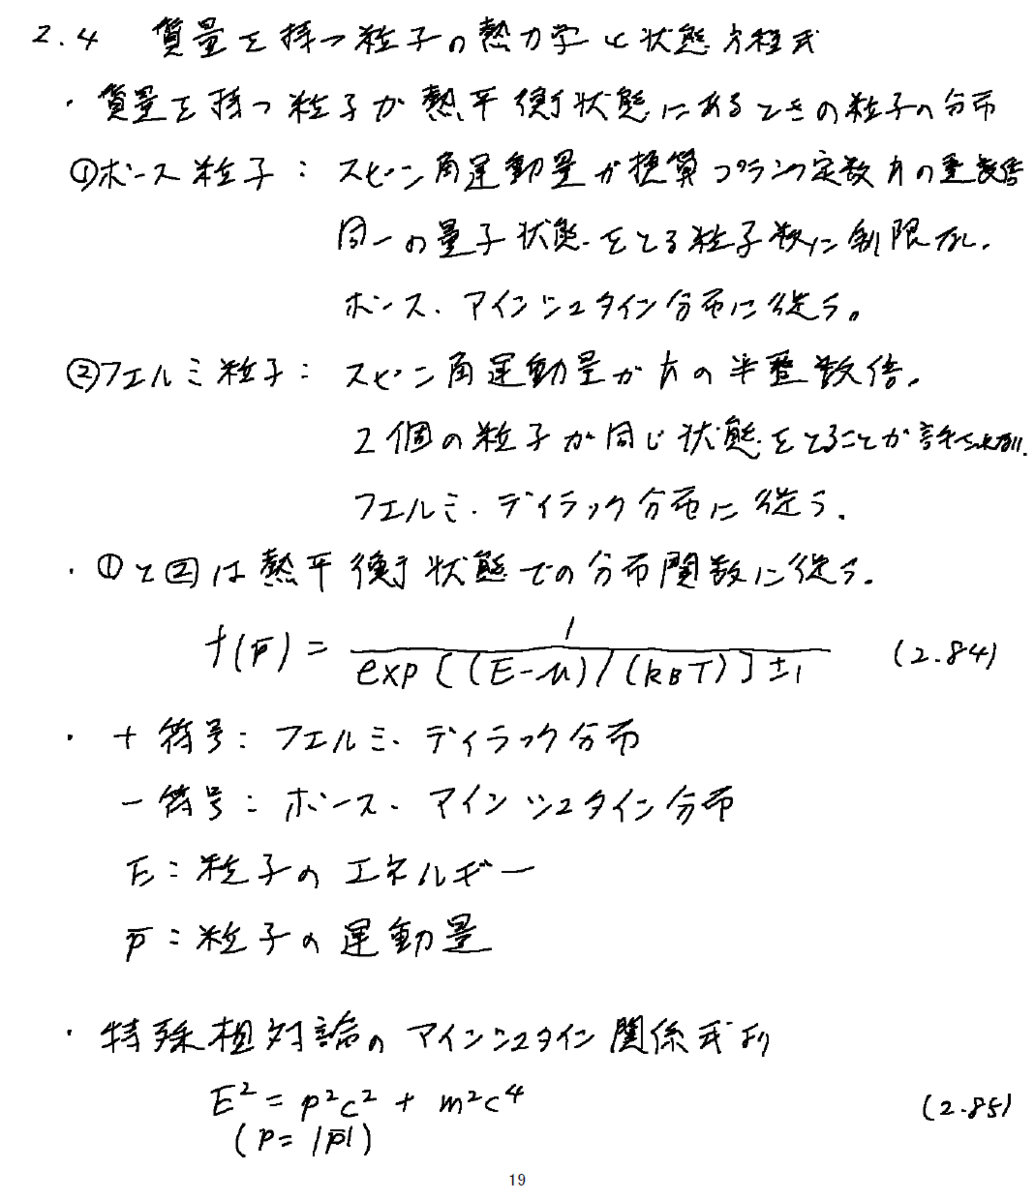 2.4 質量を持つ粒子の熱力学と状態方程式
・質量を持つ粒子が熱平衡状態にあるときの粒子の分布
①ボース粒子: スピン角運動量が換算プランク定数ħの整数倍
同一の量子状態をとる粒子数に制限なし.
ボース・アインシュタイン分布に従う。
②フェルミ粒子: スピン角運動量がħの半整数倍.
2個の粒子が同じ状態をとることが許されない.
フェルミ・ディラック分布に従う.
・①と②は熱平衡状態での分布関数に従う.
f(p̄) = 1 / exp[(E-μ)/(kBT)]±1 (2.84)
・+符号: フェルミ・ディラック分布
-符号: ボース・アインシュタイン分布
E: 粒子のエネルギー
p̄: 粒子の運動量
・特殊相対論のアインシュタイン関係式より
E² = p²c² + m²c⁴ (2.85)
(p = |p̄|)
19